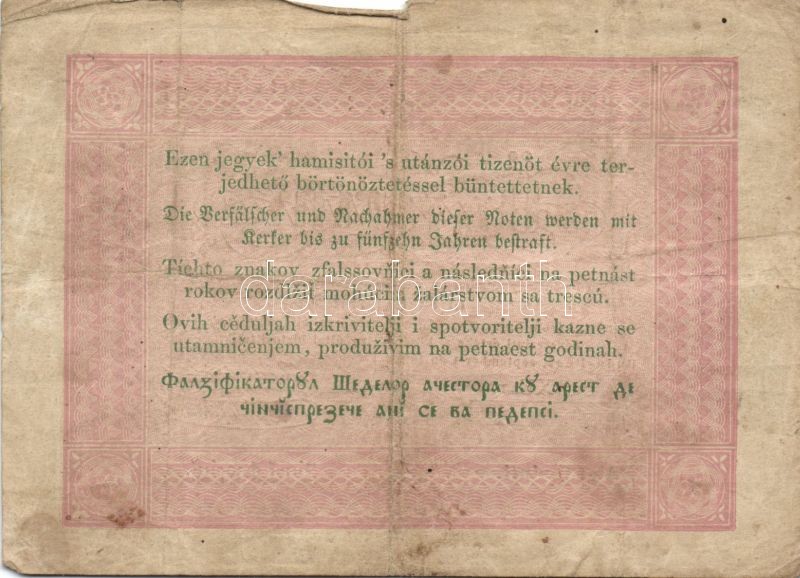 Ezen jegyek' hamisitói 's utánzói tizenöt évre ter-
jedhető börtönöztetéssel büntettetnek.
Die Verfälscher und Nachahmer dieser Noten werden mit
Kerker bis zu fünfzehn Jahren bestraft.
Tichto znakov zfalssovňíci a následňíci na petnást
rokov rozďížií mohúcim žalárstvom sa trescú.
Ovih cěduljah izkrivitelji i spotvoritelji kazne se
utamničenjem, produživim na petnaest godinah.
Фалꙁіфікаторꙋл Шеделор ачестора кꙋ арест де
чінчіспреꙁече анї се ва педепсі.
darabanth